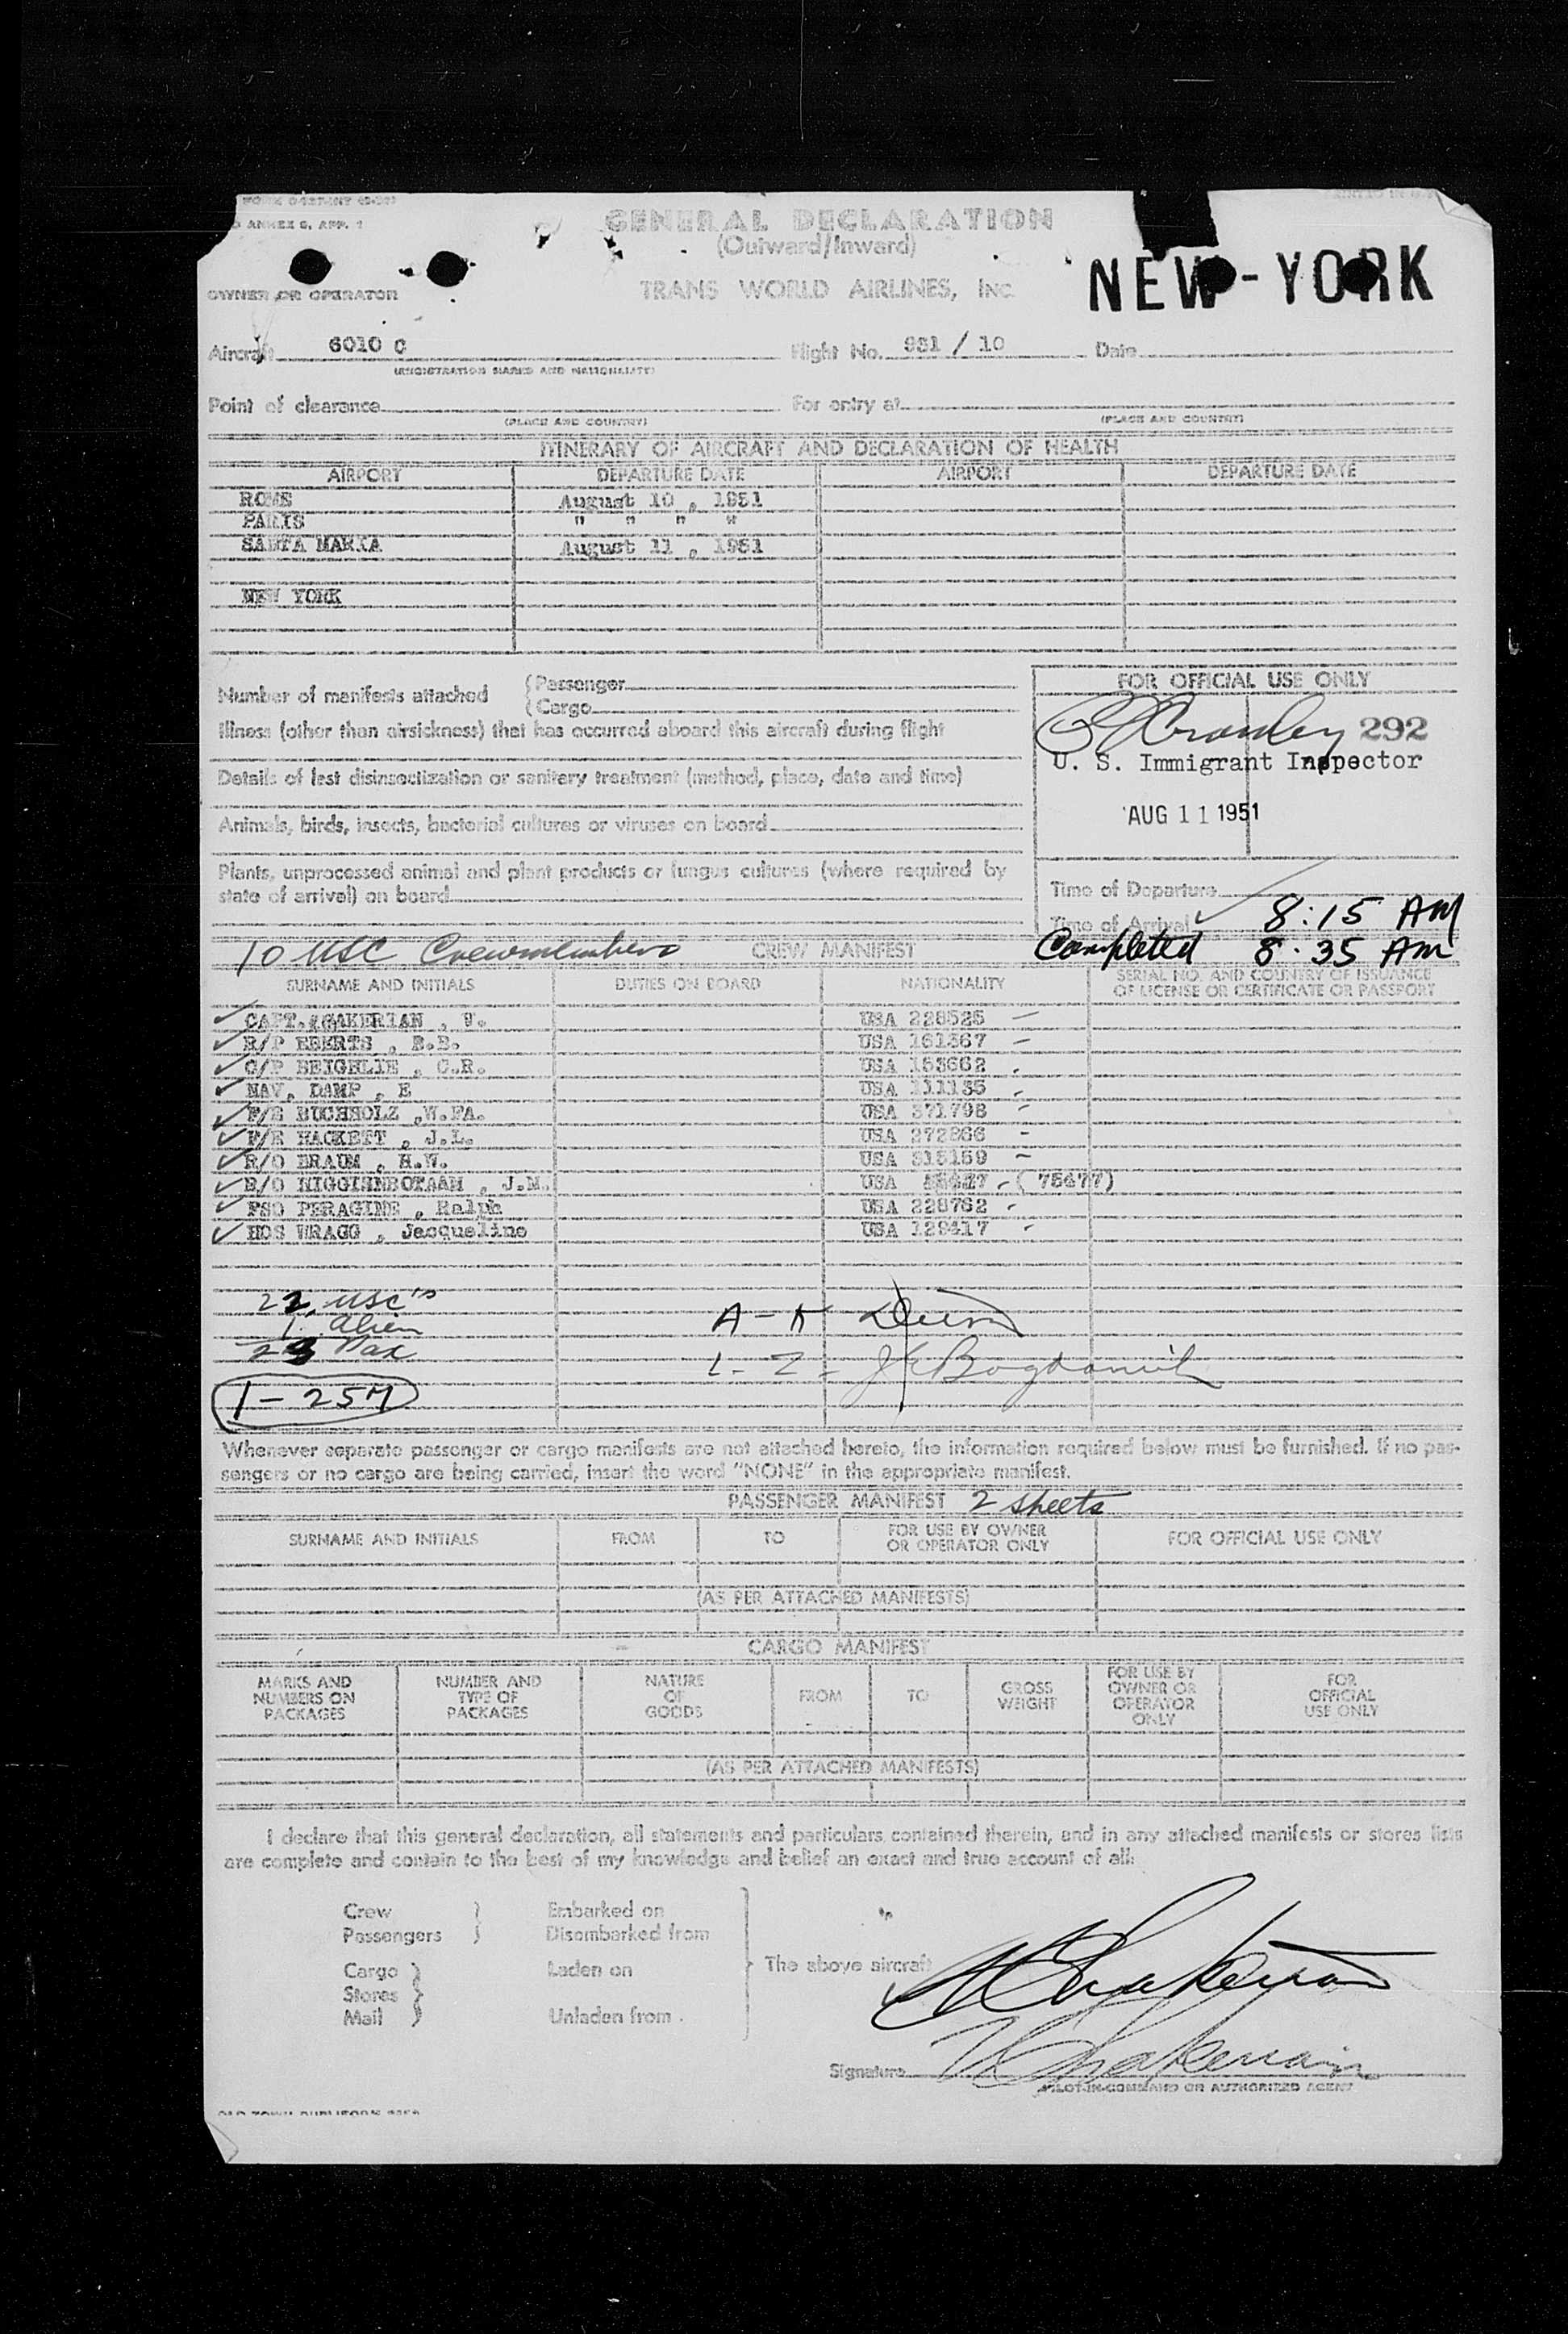 ANNEX 6, APP. 1
GENERAL DECLARATION
(Outward/Inward)
NEW-YORK
OWNER OR OPERATOR
TRANS WORLD AIRLINES, Inc.
Aircraft 6010 C Flight No. 931 / 10 Date
(REGISTRATION MARKS AND NATIONALITY)
Point of clearance For entry at
(PLACE AND COUNTRY) (PLACE AND COUNTRY)
ITINERARY OF AIRCRAFT AND DECLARATION OF HEALTH
AIRPORT DEPARTURE DATE AIRPORT DEPARTURE DATE
ROME August 10 , 1951
PARIS " " " "
SANTA MARIA August 11 , 1951
NEW YORK
Number of manifests attached { Passenger
{ Cargo
Illness (other than airsickness) that has occurred aboard this aircraft during flight
Details of last disinsectization or sanitary treatment (method, place, date and time)
Animals, birds, insects, bacterial cultures or viruses on board
Plants, unprocessed animal and plant products or fungus cultures (where required by
state of arrival) on board
FOR OFFICIAL USE ONLY
292
U. S. Immigrant Inspector
AUG 11 1951
Time of Departure
Time of Arrival 8:15 AM
Completed 8:35 AM
10 USC Crewmembers CREW MANIFEST
SURNAME AND INITIALS DUTIES ON BOARD NATIONALITY SERIAL NO. AND COUNTRY OF ISSUANCE
OF LICENSE OR CERTIFICATE OR PASSPORT
CAPT. CHAKERIAN , V. USA 228525
R/P EBERTS , E.B. USA 161367
C/P BEIGHLIE , C.R. USA 153662
NAV. DAMP , E USA 111135
F/E BUCHHOLZ ,W.FA. USA 371798
F/E HACKETT , J.L. USA 272866
R/O BRAUM , H.W. USA 315159
R/O HIGGISNBOTAAM , J.M. USA (75477)
PSO PERAGINE , Ralph USA 228762
HOS WRAGG , Jacqueline USA 129417
22 USC's
1 Alien
23 Pax
1-257
A-K
L-Z - J Bogdanich
Whenever separate passenger or cargo manifests are not attached hereto, the information required below must be furnished. If no pas-
sengers or no cargo are being carried, insert the word "NONE" in the appropriate manifest.
PASSENGER MANIFEST 2 sheets
SURNAME AND INITIALS FROM TO FOR USE BY OWNER
OR OPERATOR ONLY FOR OFFICIAL USE ONLY
(AS PER ATTACHED MANIFESTS)
CARGO MANIFEST
MARKS AND
NUMBERS ON
PACKAGES
NUMBER AND
TYPE OF
PACKAGES
NATURE
OF
GOODS
FROM
TO
GROSS
WEIGHT
FOR USE BY
OWNER OR
OPERATOR
ONLY
FOR
OFFICIAL
USE ONLY
(AS PER ATTACHED MANIFESTS)
I declare that this general declaration, all statements and particulars contained therein, and in any attached manifests or stores lists
are complete and contain to the best of my knowledge and belief an exact and true account of all:
Crew } Embarked on
Passengers } Disembarked from
Cargo } Laden on
Stores }
Mail } Unladen from
The above aircraft V Chakerian
Signature V Chakerian
PILOT-IN-COMMAND OR AUTHORIZED AGENT